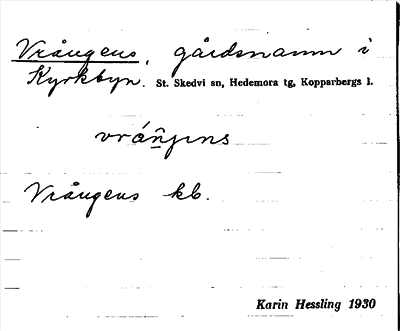 Vrångens, gårdsnamn i
Kyrkbyn. St. Skedvi sn, Hedemora tg, Kopparbergs l.
Vrångens kb.
Karin Hessling 1930